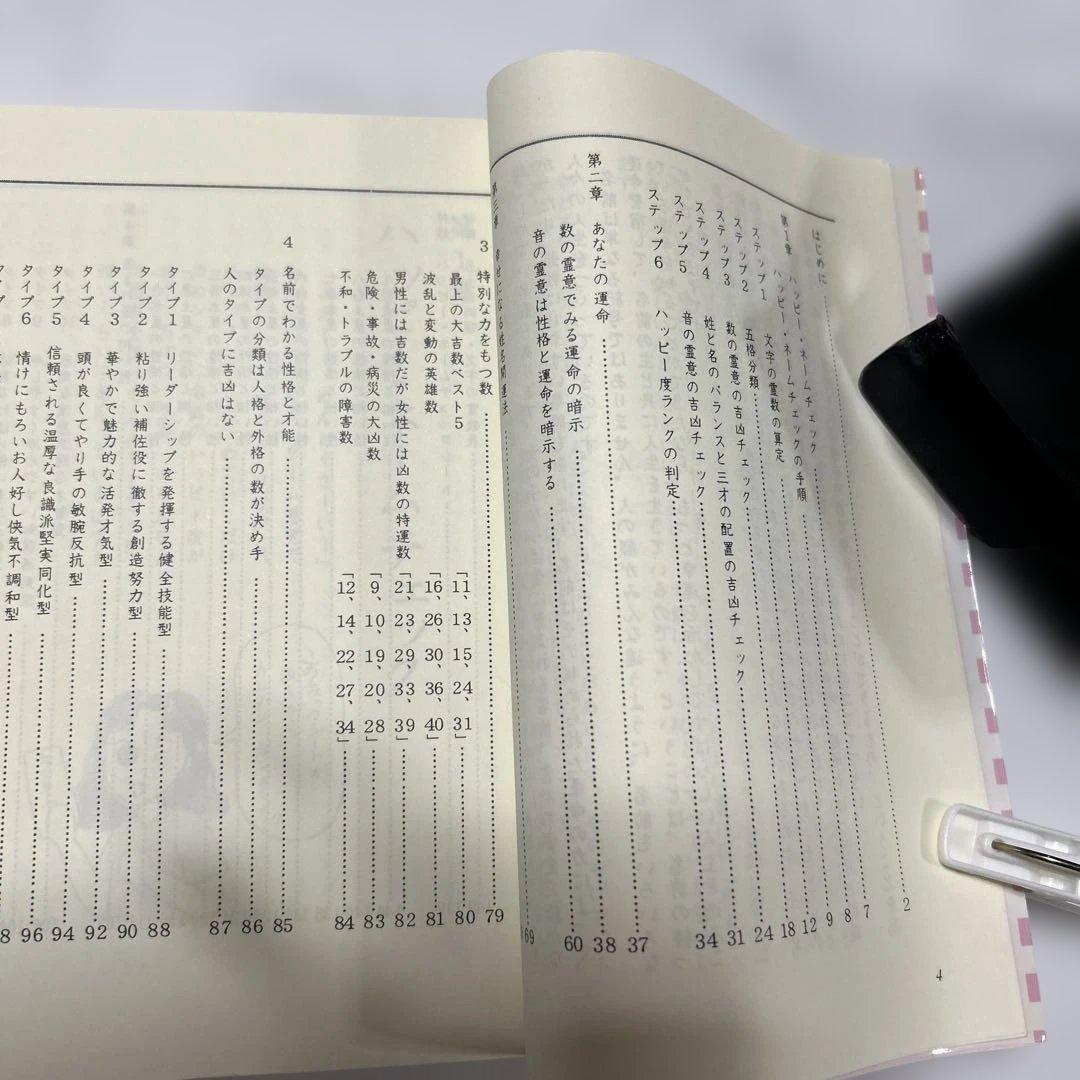 はじめに……2
第1章 ハッピー・ネームチェック……7
ハッピー・ネームチェックの手順……8
ステップ1 文字の霊数の算定……9
ステップ2 五格分類……12
ステップ3 数の霊意の吉凶チェック……18
ステップ4 姓と名のバランスと三才の配置の吉凶チェック……24
ステップ5 音の霊意の吉凶チェック……31
ステップ6 ハッピー度ランクの判定……34
第二章 あなたの運命……37
数の霊意でみる運命の暗示……38
音の霊意は性格と運命を暗示する……60
4
第三章 幸せになる姓名開運法……69
3 特別な力をもつ数……79
最上の大吉数ベスト5 「11、13、15、24、31」……80
波乱と変動の英雄数 「16、26、30、36、40」……81
男性には吉数だが女性には凶数の特運数 「21、23、29、33、39」……82
危険・事故・病災の大凶数 「9、10、19、20、28」……83
不和・トラブルの障害数 「12、14、22、27、34」……84
4 名前でわかる性格と才能……85
タイプの分類は人格と外格の数が決め手……86
人のタイプに吉凶はない……87
タイプ1 リーダーシップを発揮する健全技能型……88
タイプ2 粘り強い補佐役に徹する創造努力型……90
タイプ3 華やかで魅力的な活発才気型……92
タイプ4 頭が良くてやり手の敏腕反抗型……94
タイプ5 信頼される温厚な良識派堅実同化型……96
タイプ6 情けにもろいお人好し侠気不調和型……8